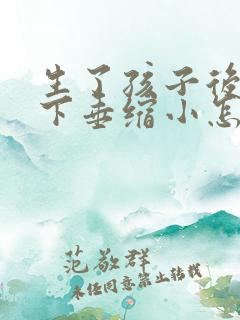 生了孩子後
下垂缩小怎
范敬群
未经同意禁止转载